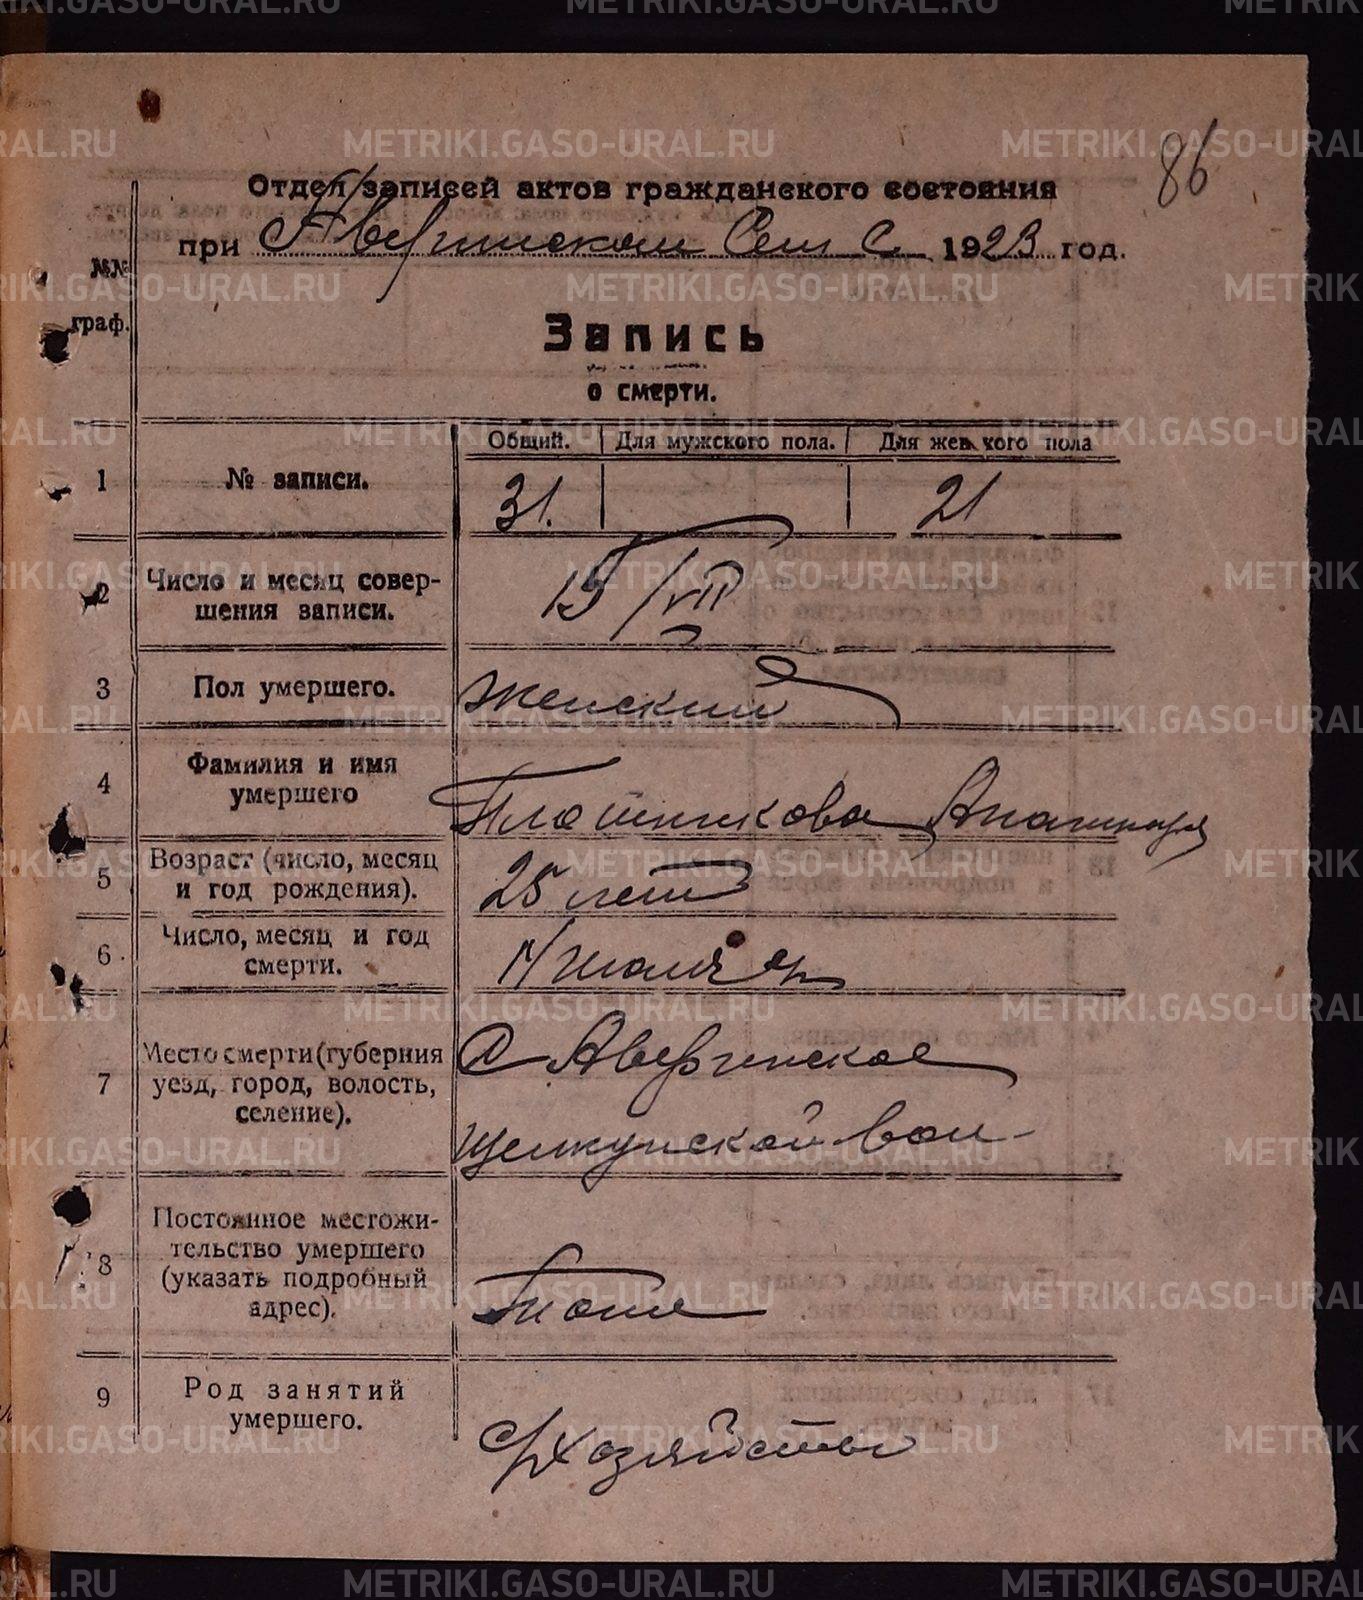 86
Отдел записей актов гражданского состояния
при Аверинском Сель С. 1923 год.
№№ граф.
Запись
о смерти.
Общий. Для мужского пола. Для женского пола
1 № записи. 31. 21
2 Число и месяц совер-
шения записи. 15/VII
3 Пол умершего. женский
4 Фамилия и имя
умершего Плотникова
5 Возраст (число, месяц
и год рождения). 25 лет
6 Число, месяц и год
смерти. 14 июля
7 Место смерти (губерния
уезд, город, волость,
селение). С Аверинское
Щелкунской вол-
8 Постоянное местожи-
тельство умершего
(указать подробный
адрес). Тоже
9 Род занятий
умершего. С/хозяйство
METRIKI.GASO-URAL.RU